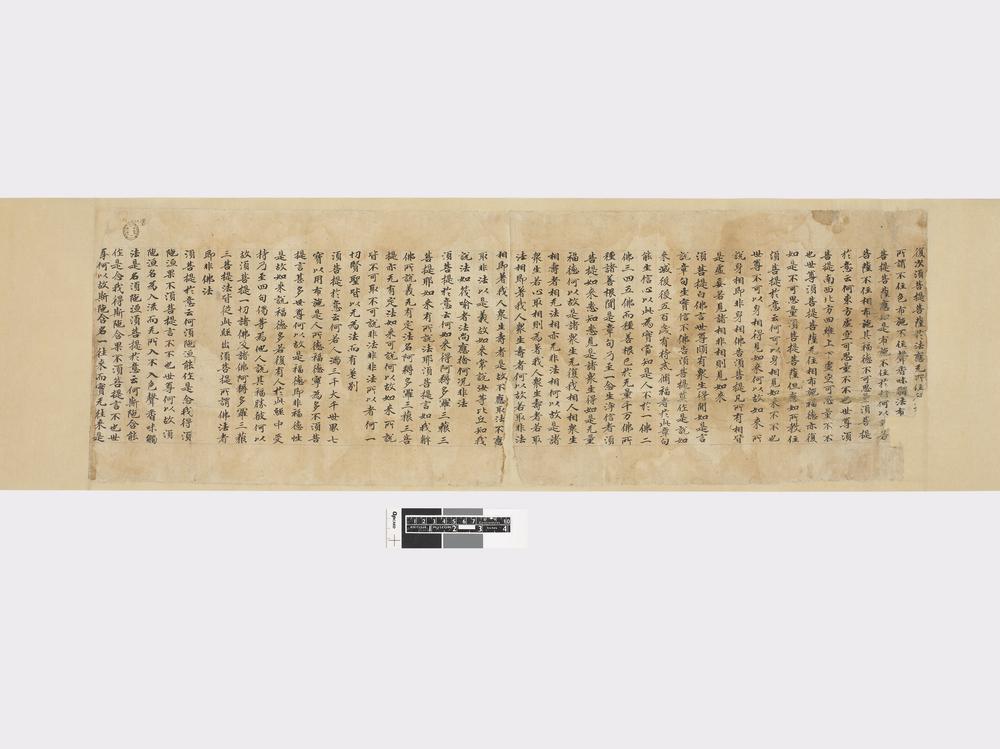 復次須菩提菩薩於法應无所住
所謂不住色布施不住聲香味觸法布
菩提菩薩應如是布施不住於相何以故若
菩薩不住相布施其福德不可思量須菩提
於意云何東方虛空可思量不不也世尊須
菩提南西北方四維上下虛空可思量不不
也世尊須菩提菩薩无住相布施福德亦復
如是不可思量須菩提菩薩但應如所教住
須菩提於意云何可以身相見如來不不也
世尊不可以身相得見如來何以故如來所
說身相即非身相佛告須菩提凡所有相皆
是虛妄若見諸相非相則見如來
須菩提白佛言世尊頗有衆生得聞如是言
說章句生實信不佛告須菩提莫作是說如
來滅後後五百歲有持戒脩福者於此章句
能生信心以此為實當知是人不於一佛二
佛三四五佛而種善根已於无量千万佛所
種諸善根聞是章句乃至一念生淨信者須
菩提如來悉知悉見是諸衆生得如是无量
福德何以故是諸衆生无復我相人相衆生
相壽者相无法相亦无非法相何以故是諸
衆生若心取相則為著我人衆生壽者若取
法相即著我人衆生壽者何以故若取非法
相即著我人衆生壽者是故不應取法不應
取非法以是義故如來常說汝等比丘知我
說法如筏喻者法尚應捨何況非法
須菩提於意云何如來得阿耨多羅三藐三
菩提耶如來有所說法耶須菩提言如我解
佛所說義无有定法名阿耨多羅三藐三菩
提亦无有定法如來可說何以故如來所說法
皆不可取不可說非法非非法所以者何一
切賢聖皆以无為法而有差別
須菩提於意云何若人滿三千大千世界七
寶以用布施是人所得福德寧為多不須菩
提言甚多世尊何以故是福德即非福德性
是故如來說福德多若復有人於此經中受
持乃至四句偈等為他人說其福勝彼何以
故須菩提一切諸佛及諸佛阿耨多羅三藐
三菩提法皆從此經出須菩提所謂佛法者
即非佛法
須菩提於意云何須陁洹能作是念我得須
陁洹果不須菩提言不也世尊何以故須
陁洹名為入流而无所入不入色聲香味觸
法是名須陁洹須菩提於意云何斯陁含能
作是念我得斯陁含果不須菩提言不也世
尊何以故斯陁含名一往來而實无往來是